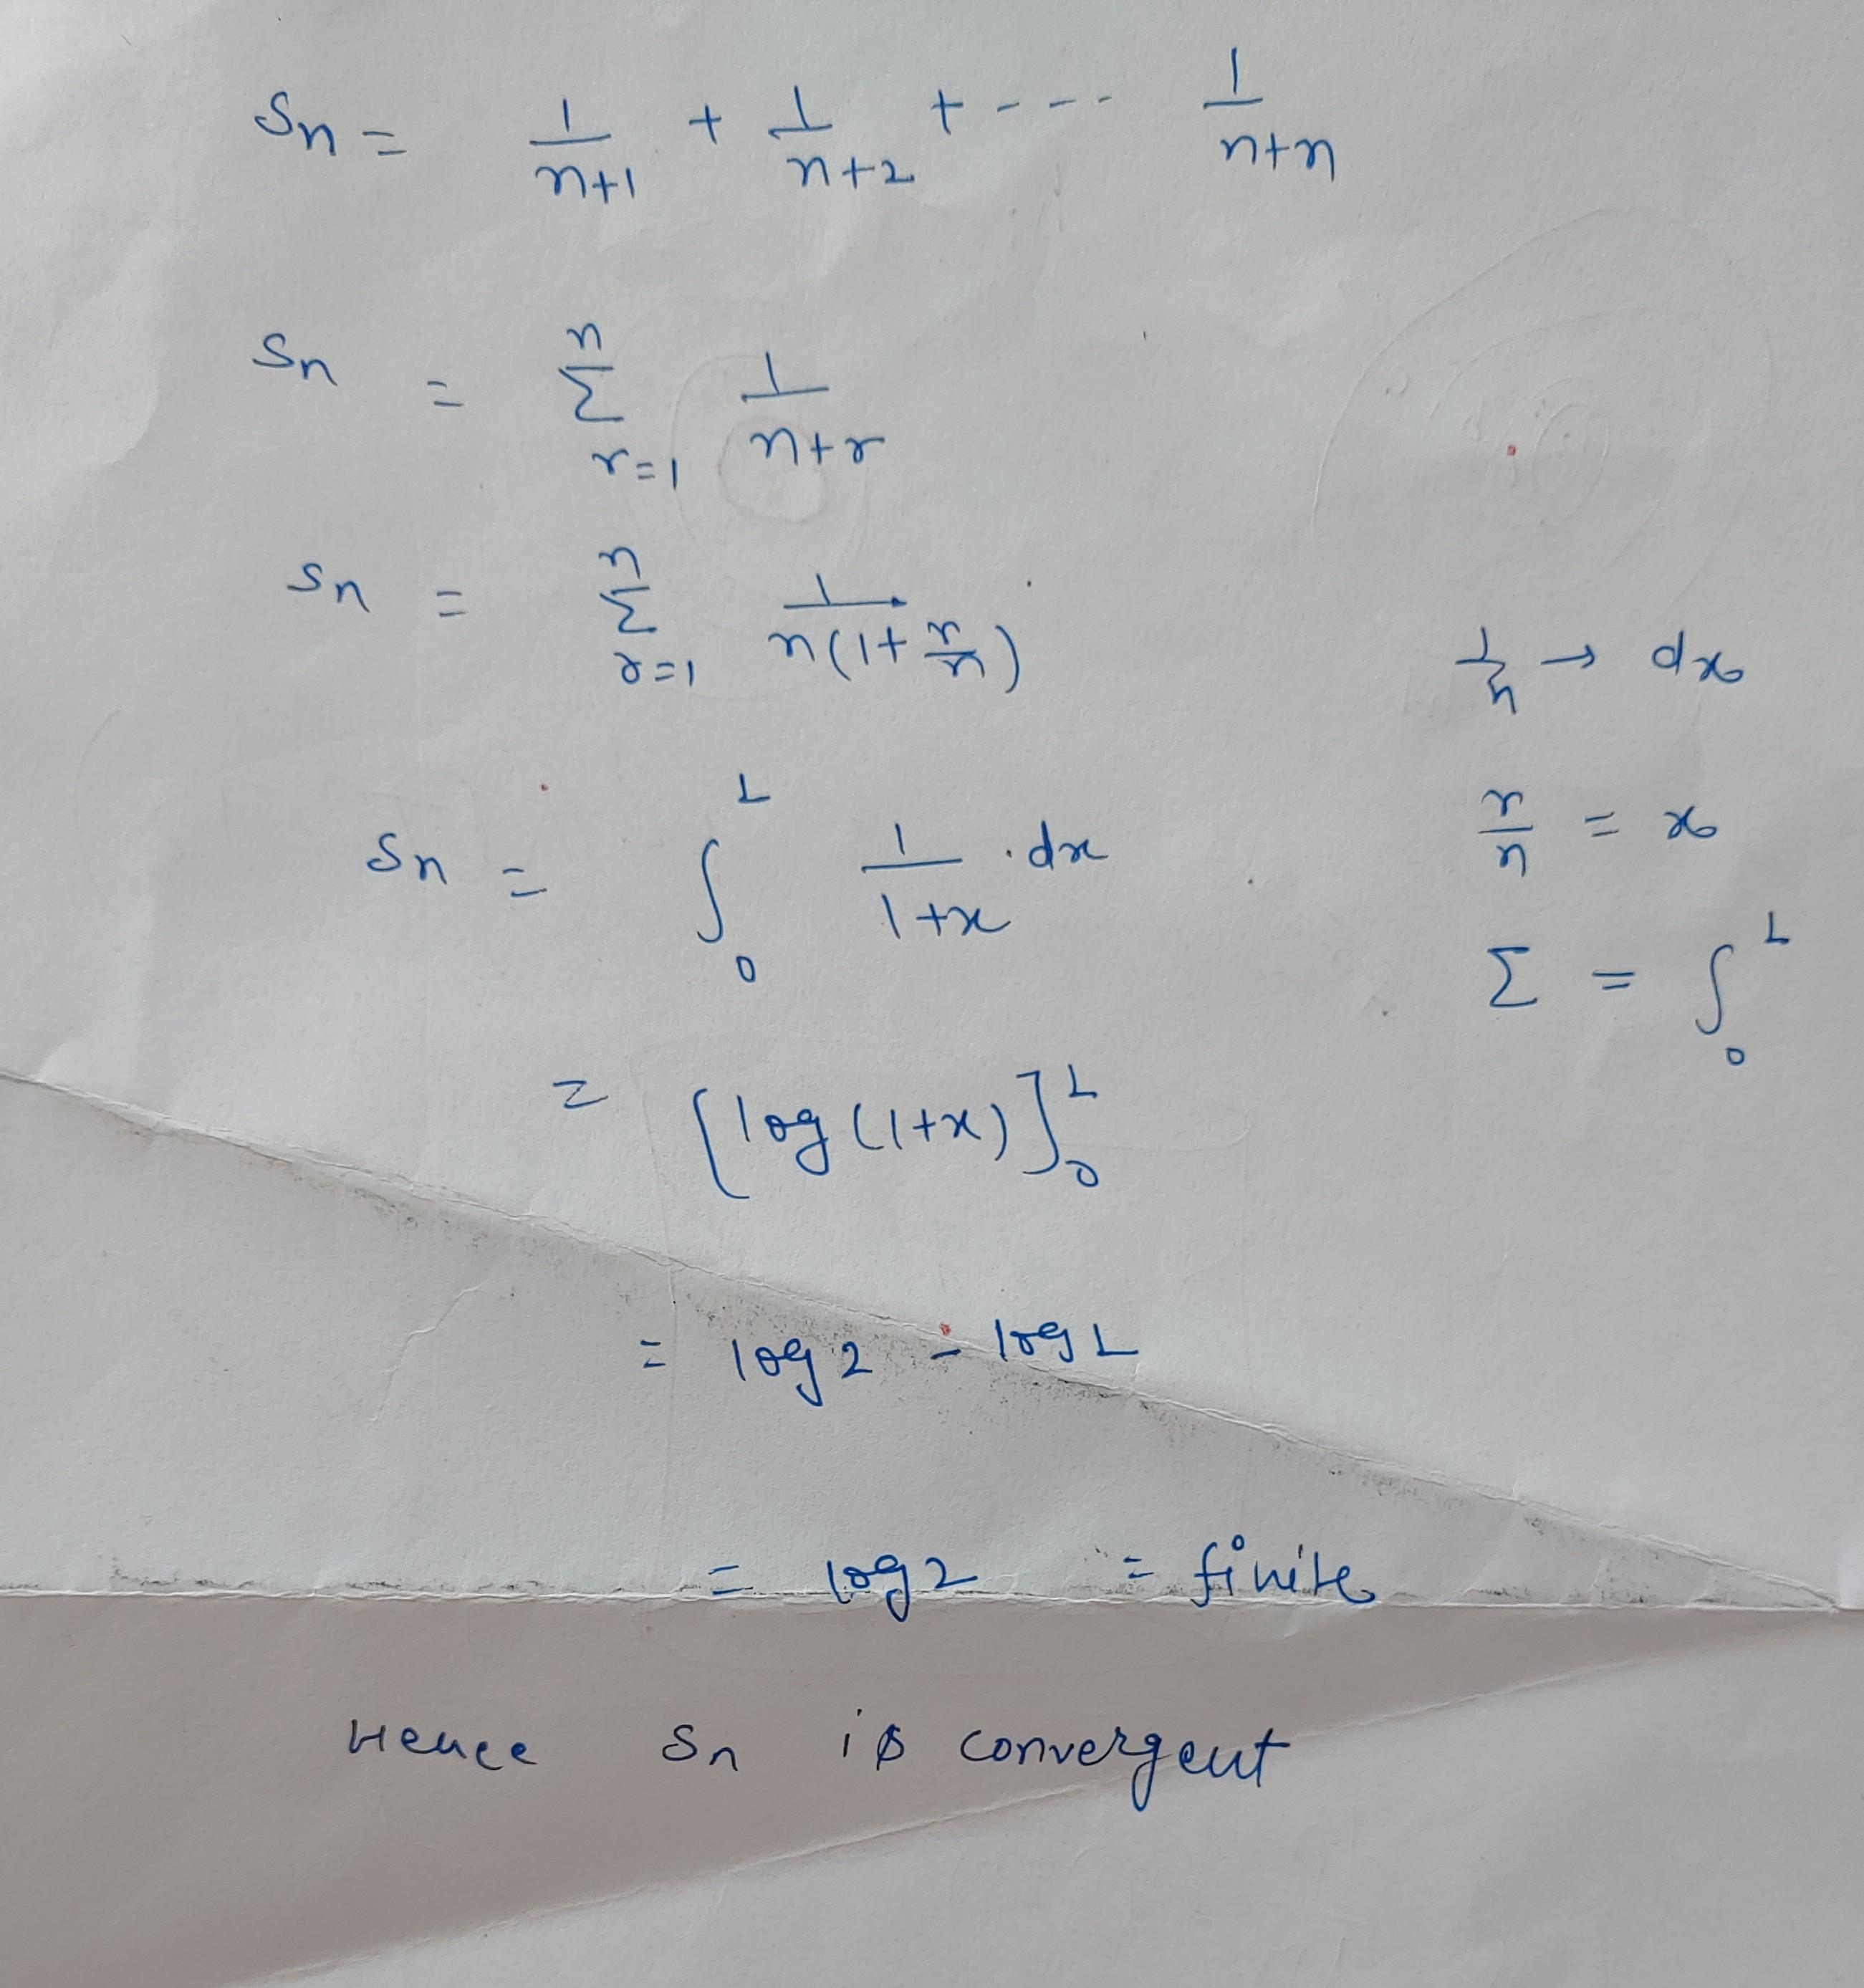 Sn = 1/(n+1) + 1/(n+2) + ---- 1/(n+n)
Sn = n Σ r=1 1/(n+r)
Sn = n Σ r=1 1/(n(1+r/n))
1/n → dx
Sn = ∫₀¹ 1/(1+x) · dx
r/n = x
Σ = ∫₀¹
= [log(1+x)]₀¹
= log 2 - log 1
= log 2 = finite
Hence Sn is convergent